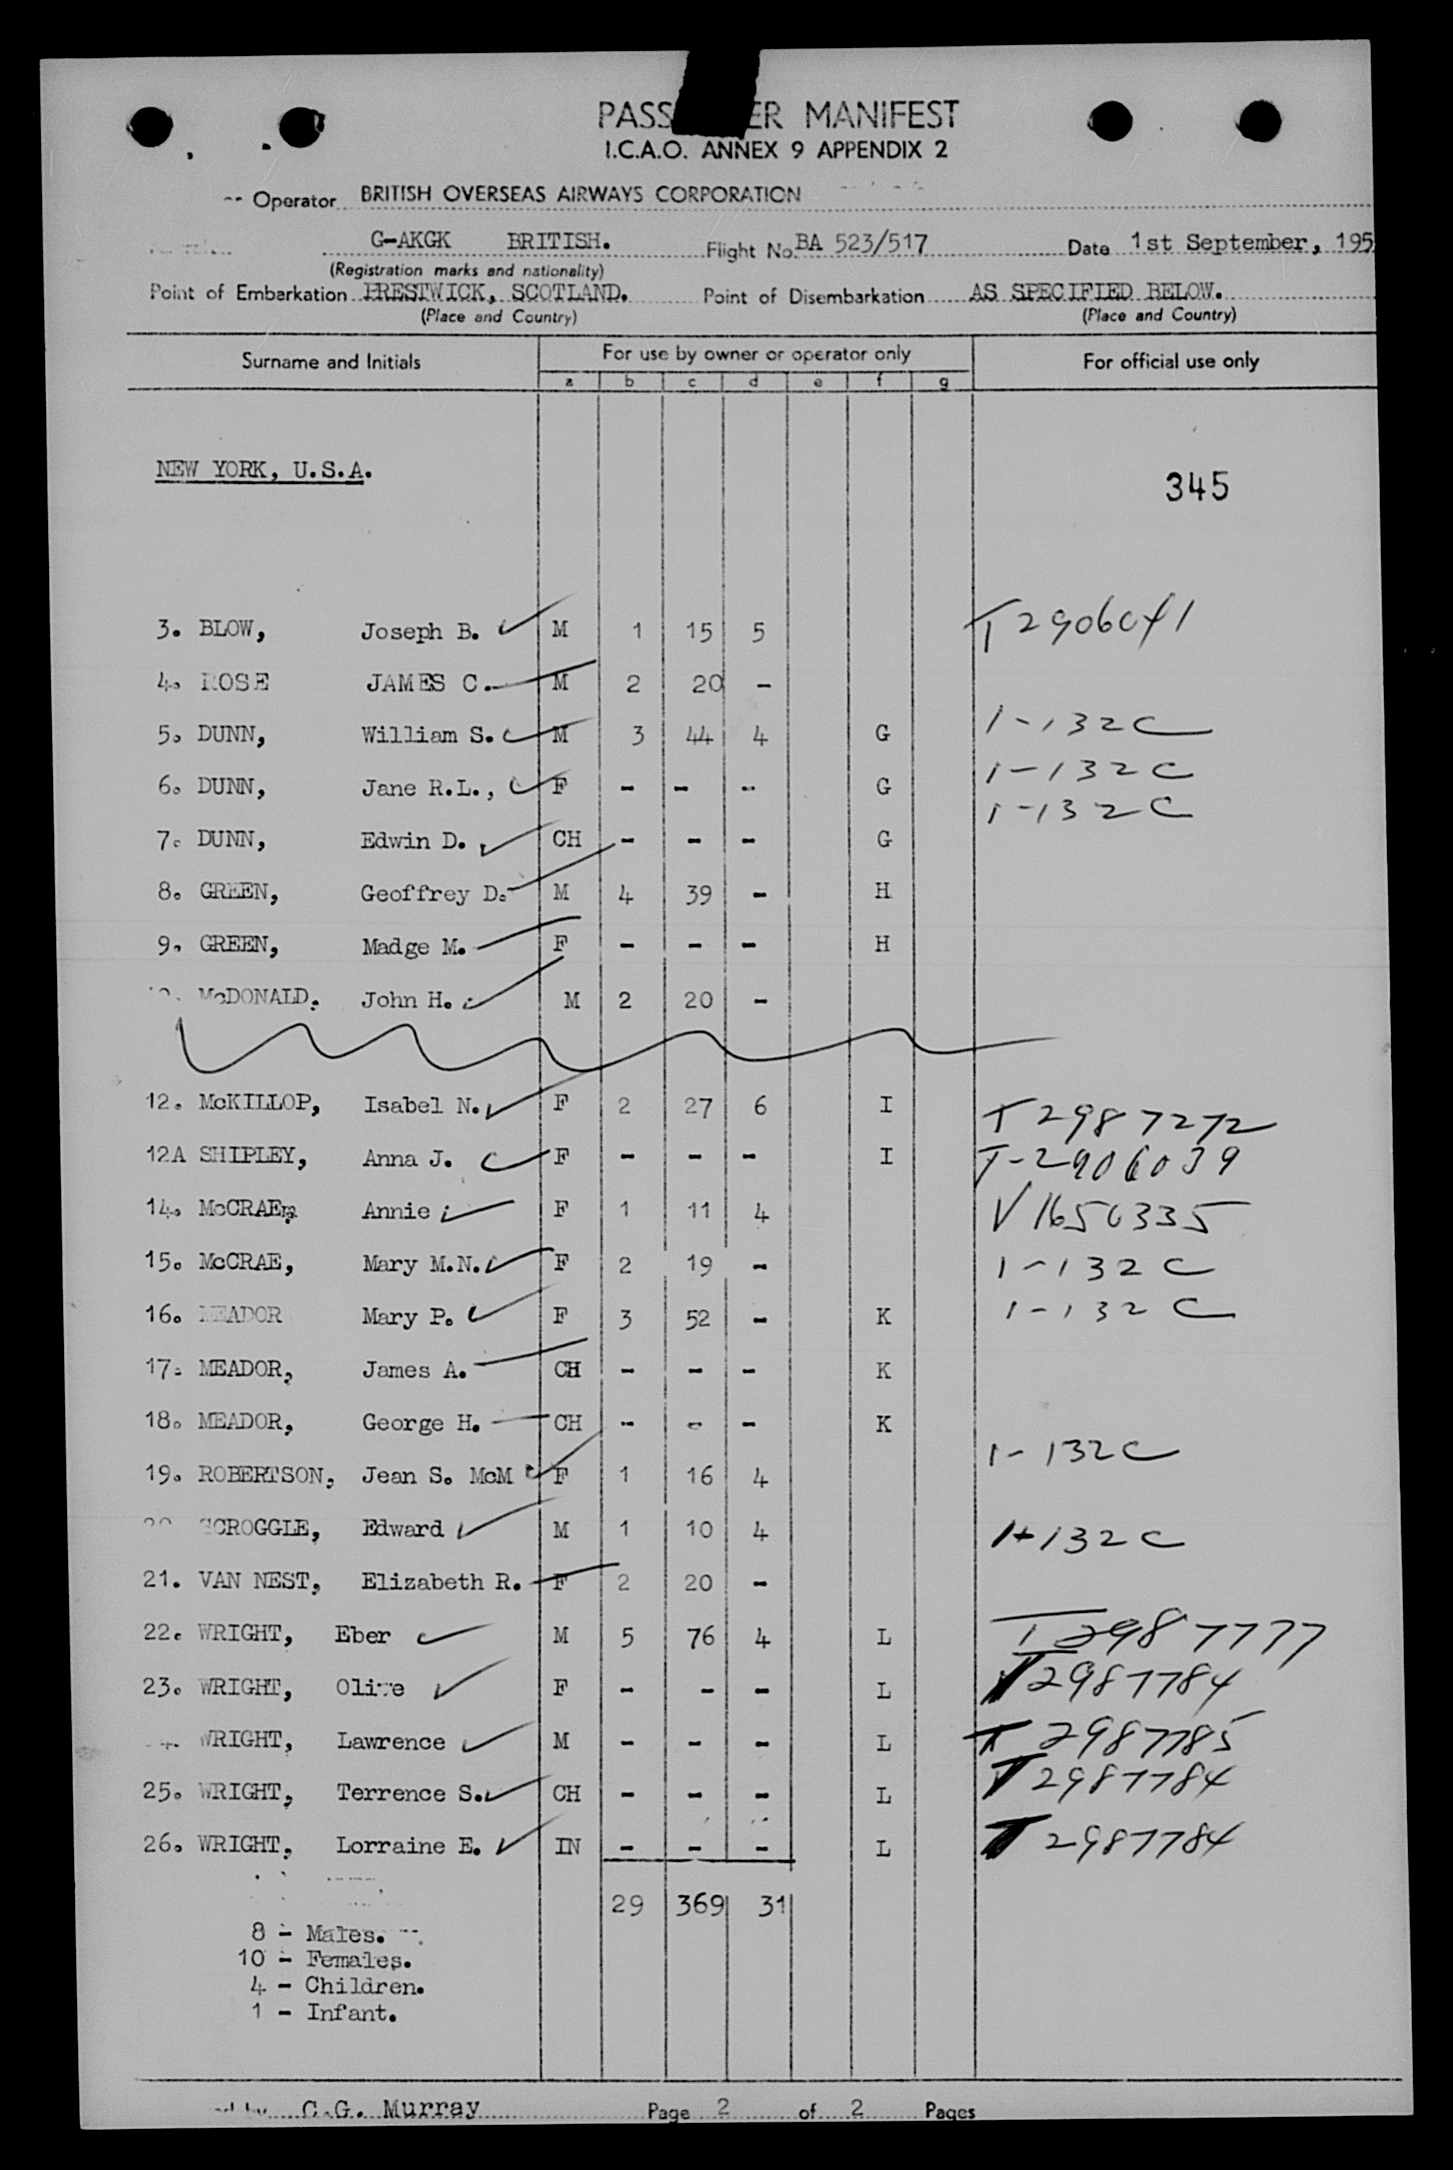 PASS ER MANIFEST
I.C.A.O. ANNEX 9 APPENDIX 2
Operator BRITISH OVERSEAS AIRWAYS CORPORATION
G-AKGK BRITISH. Flight No. BA 523/517 Date 1st September, 195
(Registration marks and nationality)
Point of Embarkation PRESTWICK, SCOTLAND. Point of Disembarkation AS SPECIFIED BELOW.
(Place and Country) (Place and Country)
Surname and Initials For use by owner or operator only For official use only
a b c d e f g
NEW YORK, U.S.A.
345
3. BLOW, Joseph B. M 1 15 5 T2906041
4. ROSE JAMES C. M 2 20 -
5. DUNN, William S. M 3 44 4 G 1-132C
6. DUNN, Jane R.L., F - - - G 1-132C
7. DUNN, Edwin D. CH - - - G 1-132C
8. GREEN, Geoffrey D. M 4 39 - H
9. GREEN, Madge M. F - - - H
McDONALD. John H. M 2 20 -
12. McKILLOP, Isabel N. F 2 27 6 I T2987272
12A SHIPLEY, Anna J. F - - - I T-2906039
14. McCRAE, Annie F 1 11 4 V1650335
15. McCRAE, Mary M.N. F 2 19 - 1-132C
16. MEADOR Mary P. F 3 52 - K 1-132C
17. MEADOR, James A. CH - - - K
18. MEADOR, George H. CH - - - K
19. ROBERTSON, Jean S. McM F 1 16 4 1-132C
SCROGGLE, Edward M 1 10 4 1-132C
21. VAN NEST, Elizabeth R. F 2 20 -
22. WRIGHT, Eber M 5 76 4 L T2987777
23. WRIGHT, Olive F - - - L T2987784
WRIGHT, Lawrence M - - - L T2987785
25. WRIGHT, Terrence S. CH - - - L T2987784
26. WRIGHT, Lorraine E. IN - - - L T2987784
29 369 31
8 - Males.
10 - Females.
4 - Children.
1 - Infant.
C.G. Murray Page 2 of 2 Pages